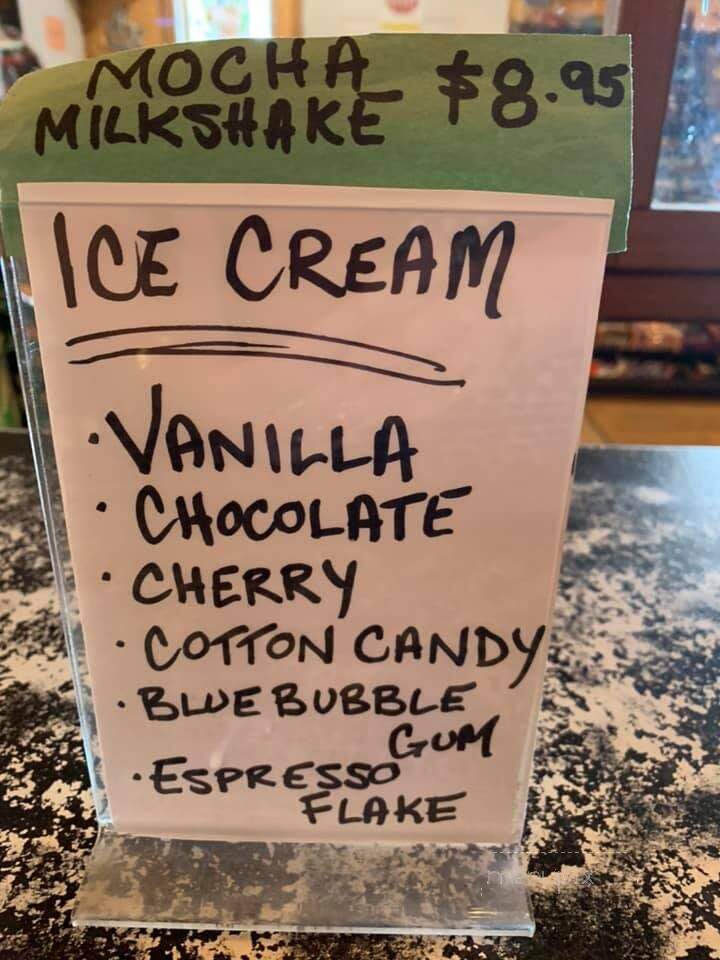 MOCHA $8.95
MILKSHAKE
ICE CREAM
· VANILLA
· CHOCOLATE
· CHERRY
· COTTON CANDY
· BLUE BUBBLE
GUM
· ESPRESSO
FLAKE